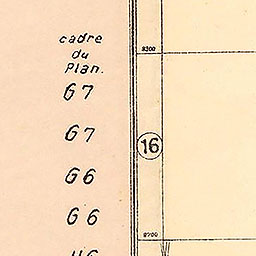 cadre
du
Plan.
G7
G7
G6
G6
8300
16